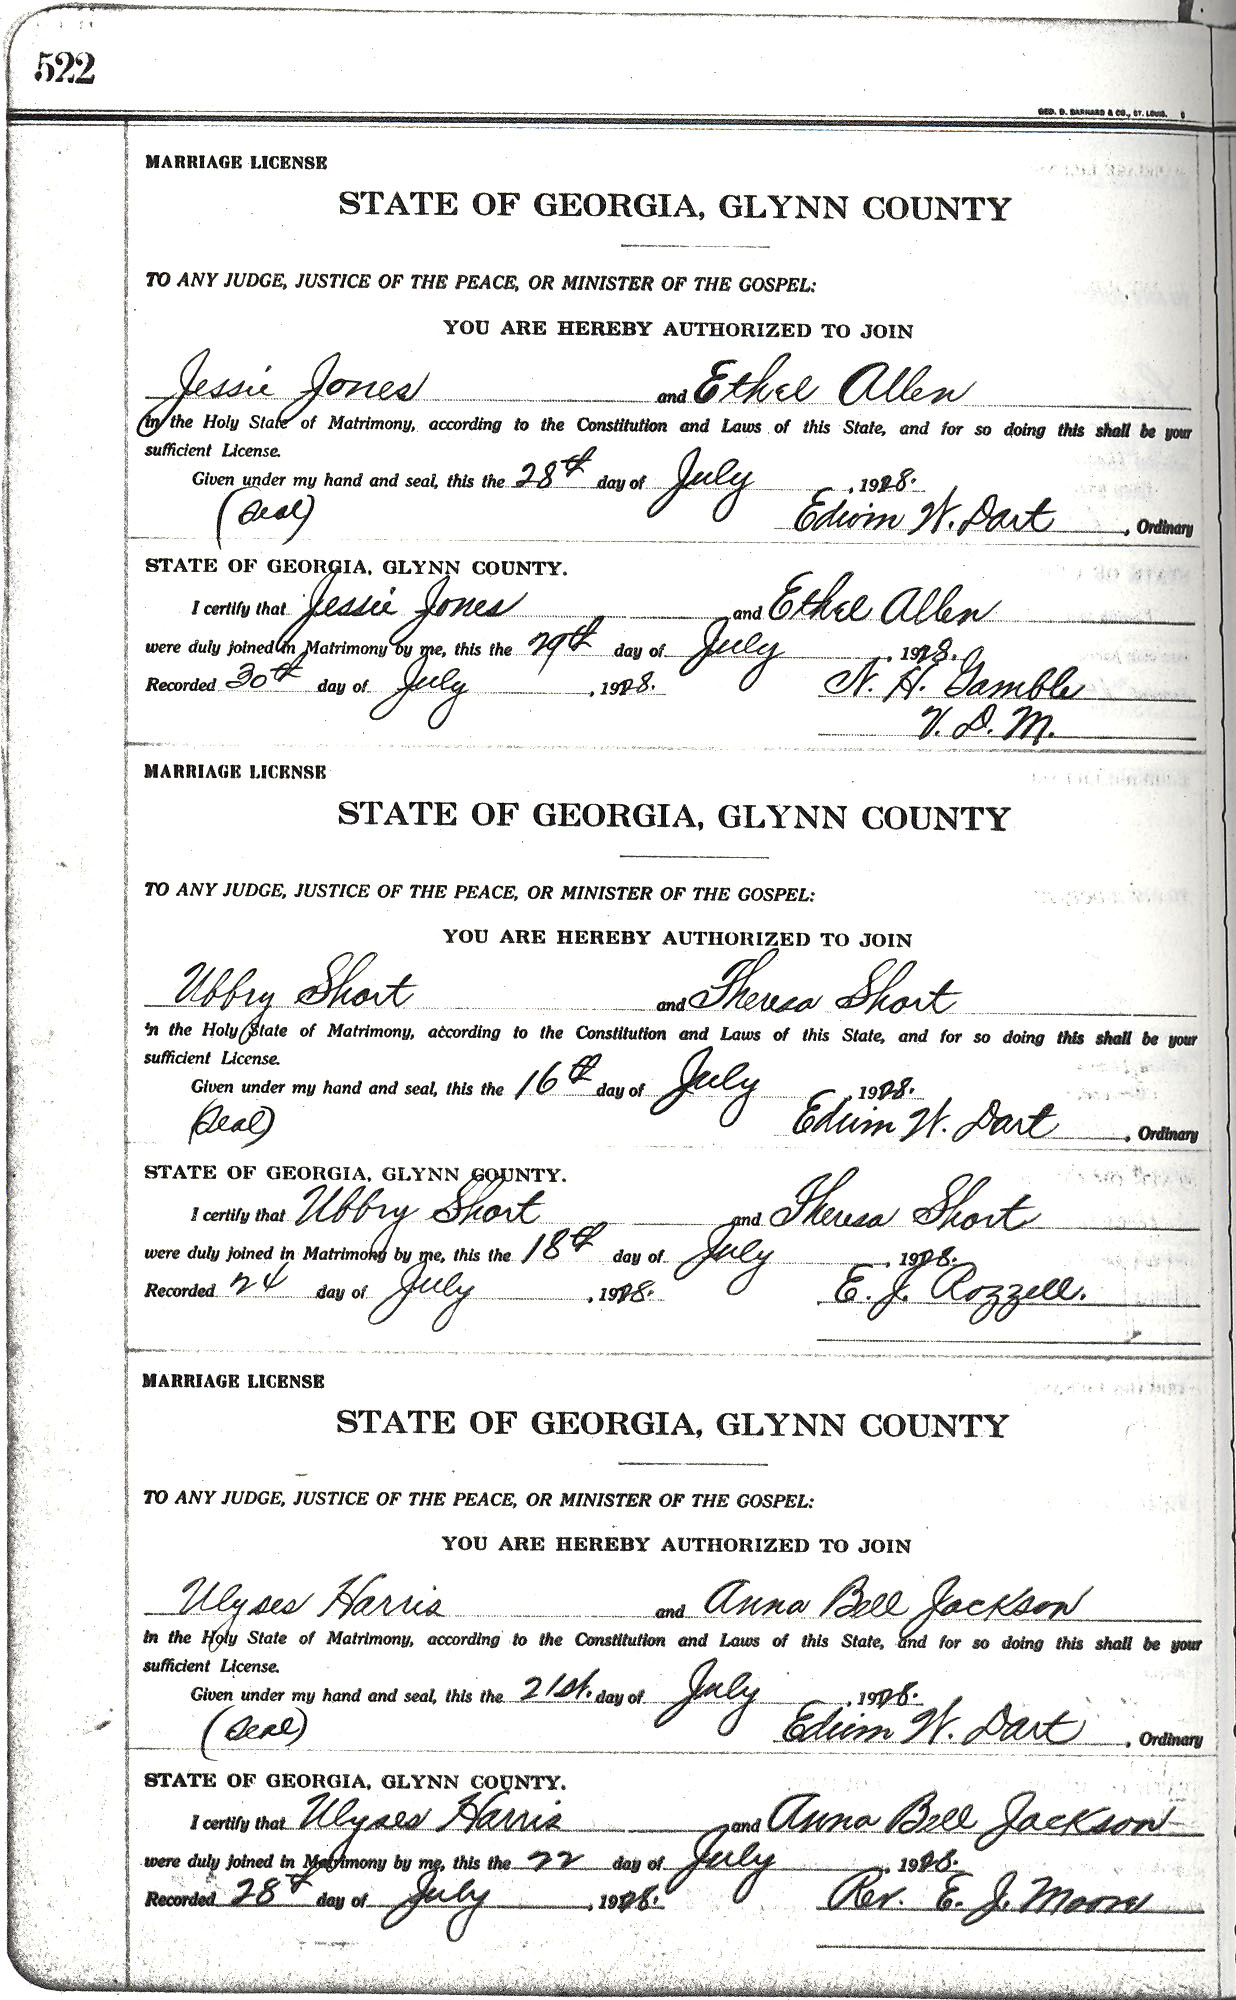 522
GEO. D. BARNARD & CO., ST. LOUIS.
MARRIAGE LICENSE
STATE OF GEORGIA, GLYNN COUNTY
TO ANY JUDGE, JUSTICE OF THE PEACE, OR MINISTER OF THE GOSPEL:
YOU ARE HEREBY AUTHORIZED TO JOIN
Jessie Jones and Ethel Allen
in the Holy State of Matrimony, according to the Constitution and Laws of this State, and for so doing this shall be your
sufficient License.
Given under my hand and seal, this the 28th day of July, 1928.
(Seal) Edwin W. Dart, Ordinary
STATE OF GEORGIA, GLYNN COUNTY.
I certify that Jessie Jones and Ethel Allen
were duly joined in Matrimony by me, this the 29th day of July, 1928.
Recorded 30th day of July, 1928. N. H. Gamble
V. D. M.
MARRIAGE LICENSE
STATE OF GEORGIA, GLYNN COUNTY
TO ANY JUDGE, JUSTICE OF THE PEACE, OR MINISTER OF THE GOSPEL:
YOU ARE HEREBY AUTHORIZED TO JOIN
Ubbry Short and Theresa Short
in the Holy State of Matrimony, according to the Constitution and Laws of this State, and for so doing this shall be your
sufficient License.
Given under my hand and seal, this the 16th day of July, 1928.
(Seal) Edwin W. Dart, Ordinary
STATE OF GEORGIA, GLYNN COUNTY.
I certify that Ubbry Short and Theresa Short
were duly joined in Matrimony by me, this the 18th day of July, 1928.
Recorded 24 day of July, 1928. E. J. Rozzell.
MARRIAGE LICENSE
STATE OF GEORGIA, GLYNN COUNTY
TO ANY JUDGE, JUSTICE OF THE PEACE, OR MINISTER OF THE GOSPEL:
YOU ARE HEREBY AUTHORIZED TO JOIN
Ulyses Harris and Anna Bell Jackson
in the Holy State of Matrimony, according to the Constitution and Laws of this State, and for so doing this shall be your
sufficient License.
Given under my hand and seal, this the 21st. day of July, 1928.
(Seal) Edwin W. Dart, Ordinary
STATE OF GEORGIA, GLYNN COUNTY.
I certify that Ulyses Harris and Anna Bell Jackson
were duly joined in Matrimony by me, this the 22 day of July, 1928.
Recorded 28th day of July, 1928. Rev. E. J. Moore